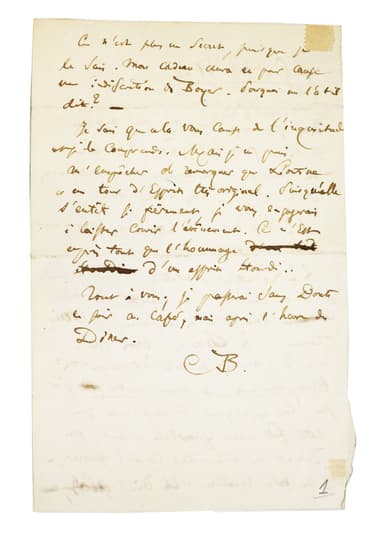 Ce n'est plus un Secret, puisque je
le sais. Mon cadeau aura eu pour cause
une indiscrétion de Boyer. Pourquoi m'a-t-il
dit? —
Je sais que cela vous cause de l'inquiétude
et je le comprends. Mais je ne puis
m'empêcher de remarquer que
a un tour d'Esprit très original. Puisqu'elle
s'entête si fièrement, je vous engagerais
à laisser courir l'événement. Ce n'Est
après tout que l'hommage
d'un esprit étourdi..
Tout à vous. je passerai sans Doute
ce soir au Café, mais après l'heure du
Diner.
CB.
1